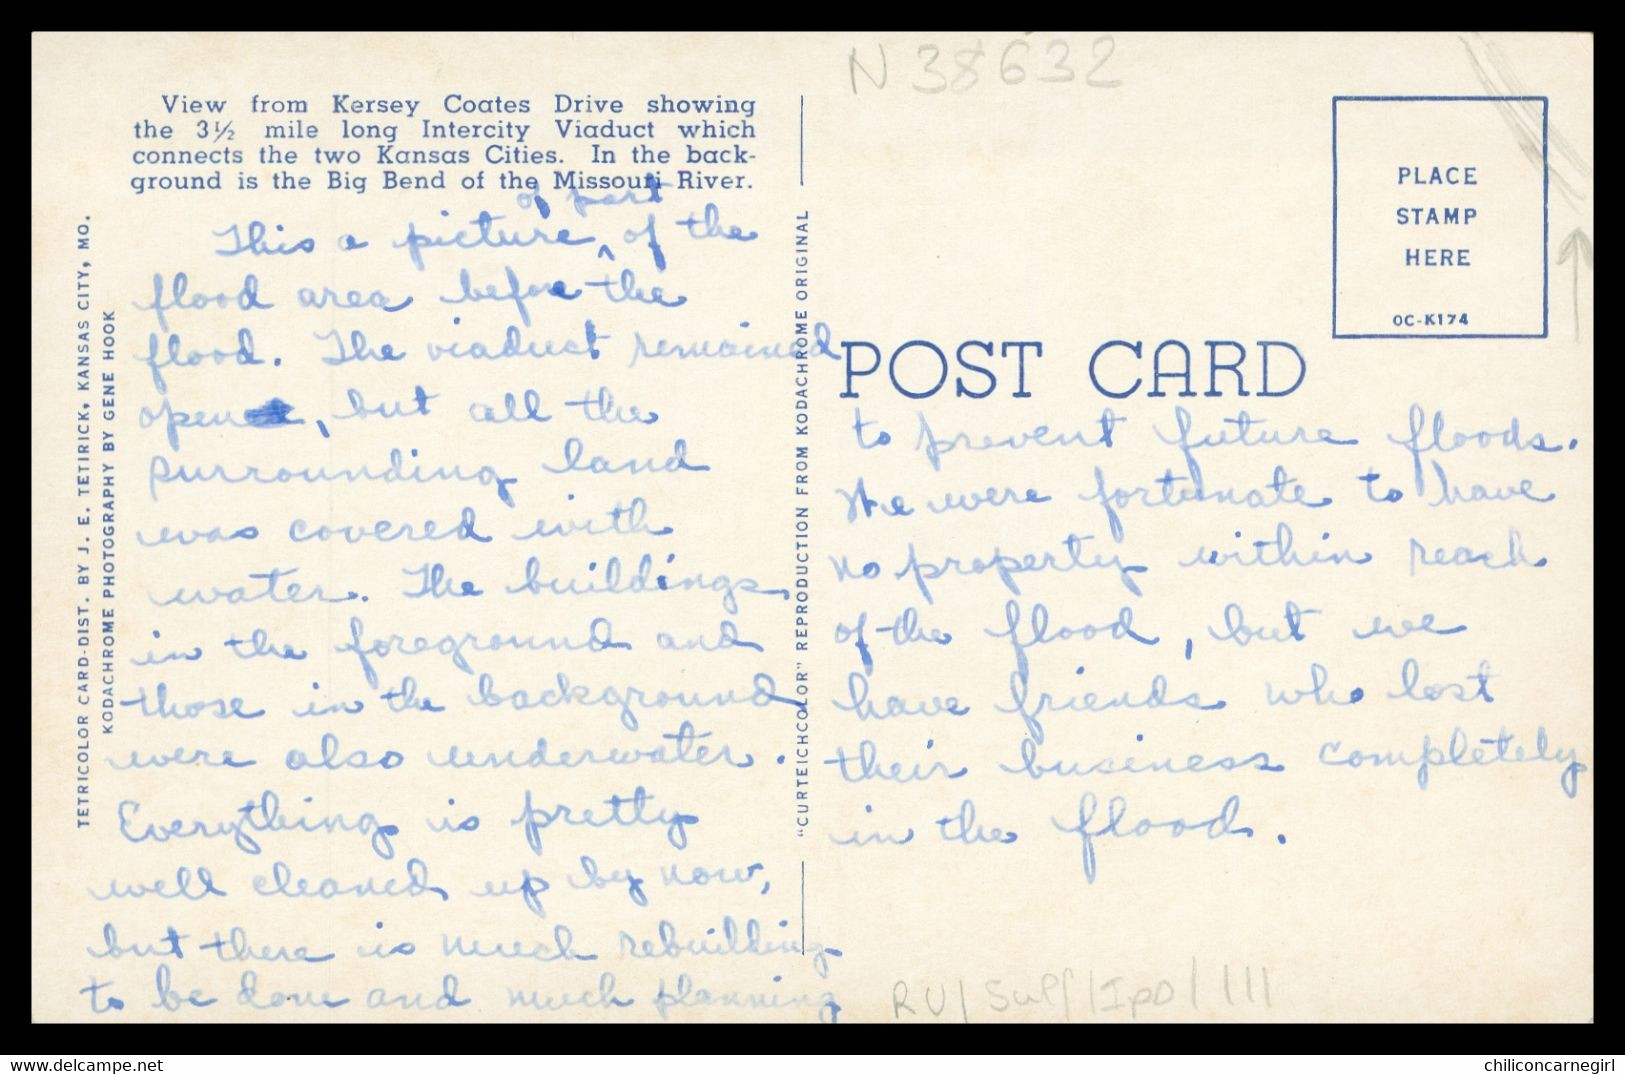 N 38632
View from Kersey Coates Drive showing
the 3½ mile long Intercity Viaduct which
connects the two Kansas Cities. In the back-
ground is the Big Bend of the Missouri River.
of part
This a picture ^ of the
flood area before the
flood. The viaduct remained
open, but all the
surrounding land
was covered with
water. The buildings
in the foreground and
those in the background
were also underwater.
Everything is pretty
well cleaned up by now,
but there is much rebuilding
to be done and much planning
TETRICOLOR CARD-DIST. BY J. E. TETIRICK, KANSAS CITY, MO.
KODACHROME PHOTOGRAPHY BY GENE HOOK
"CURTEICHCOLOR" REPRODUCTION FROM KODACHROME ORIGINAL
PLACE
STAMP
HERE
OC-K174
POST CARD
to prevent future floods.
We were fortunate to have
no property within reach
of the flood, but we
have friends who lost
their business completely
in the flood.
RU/ /111
chiliconcarnegirl